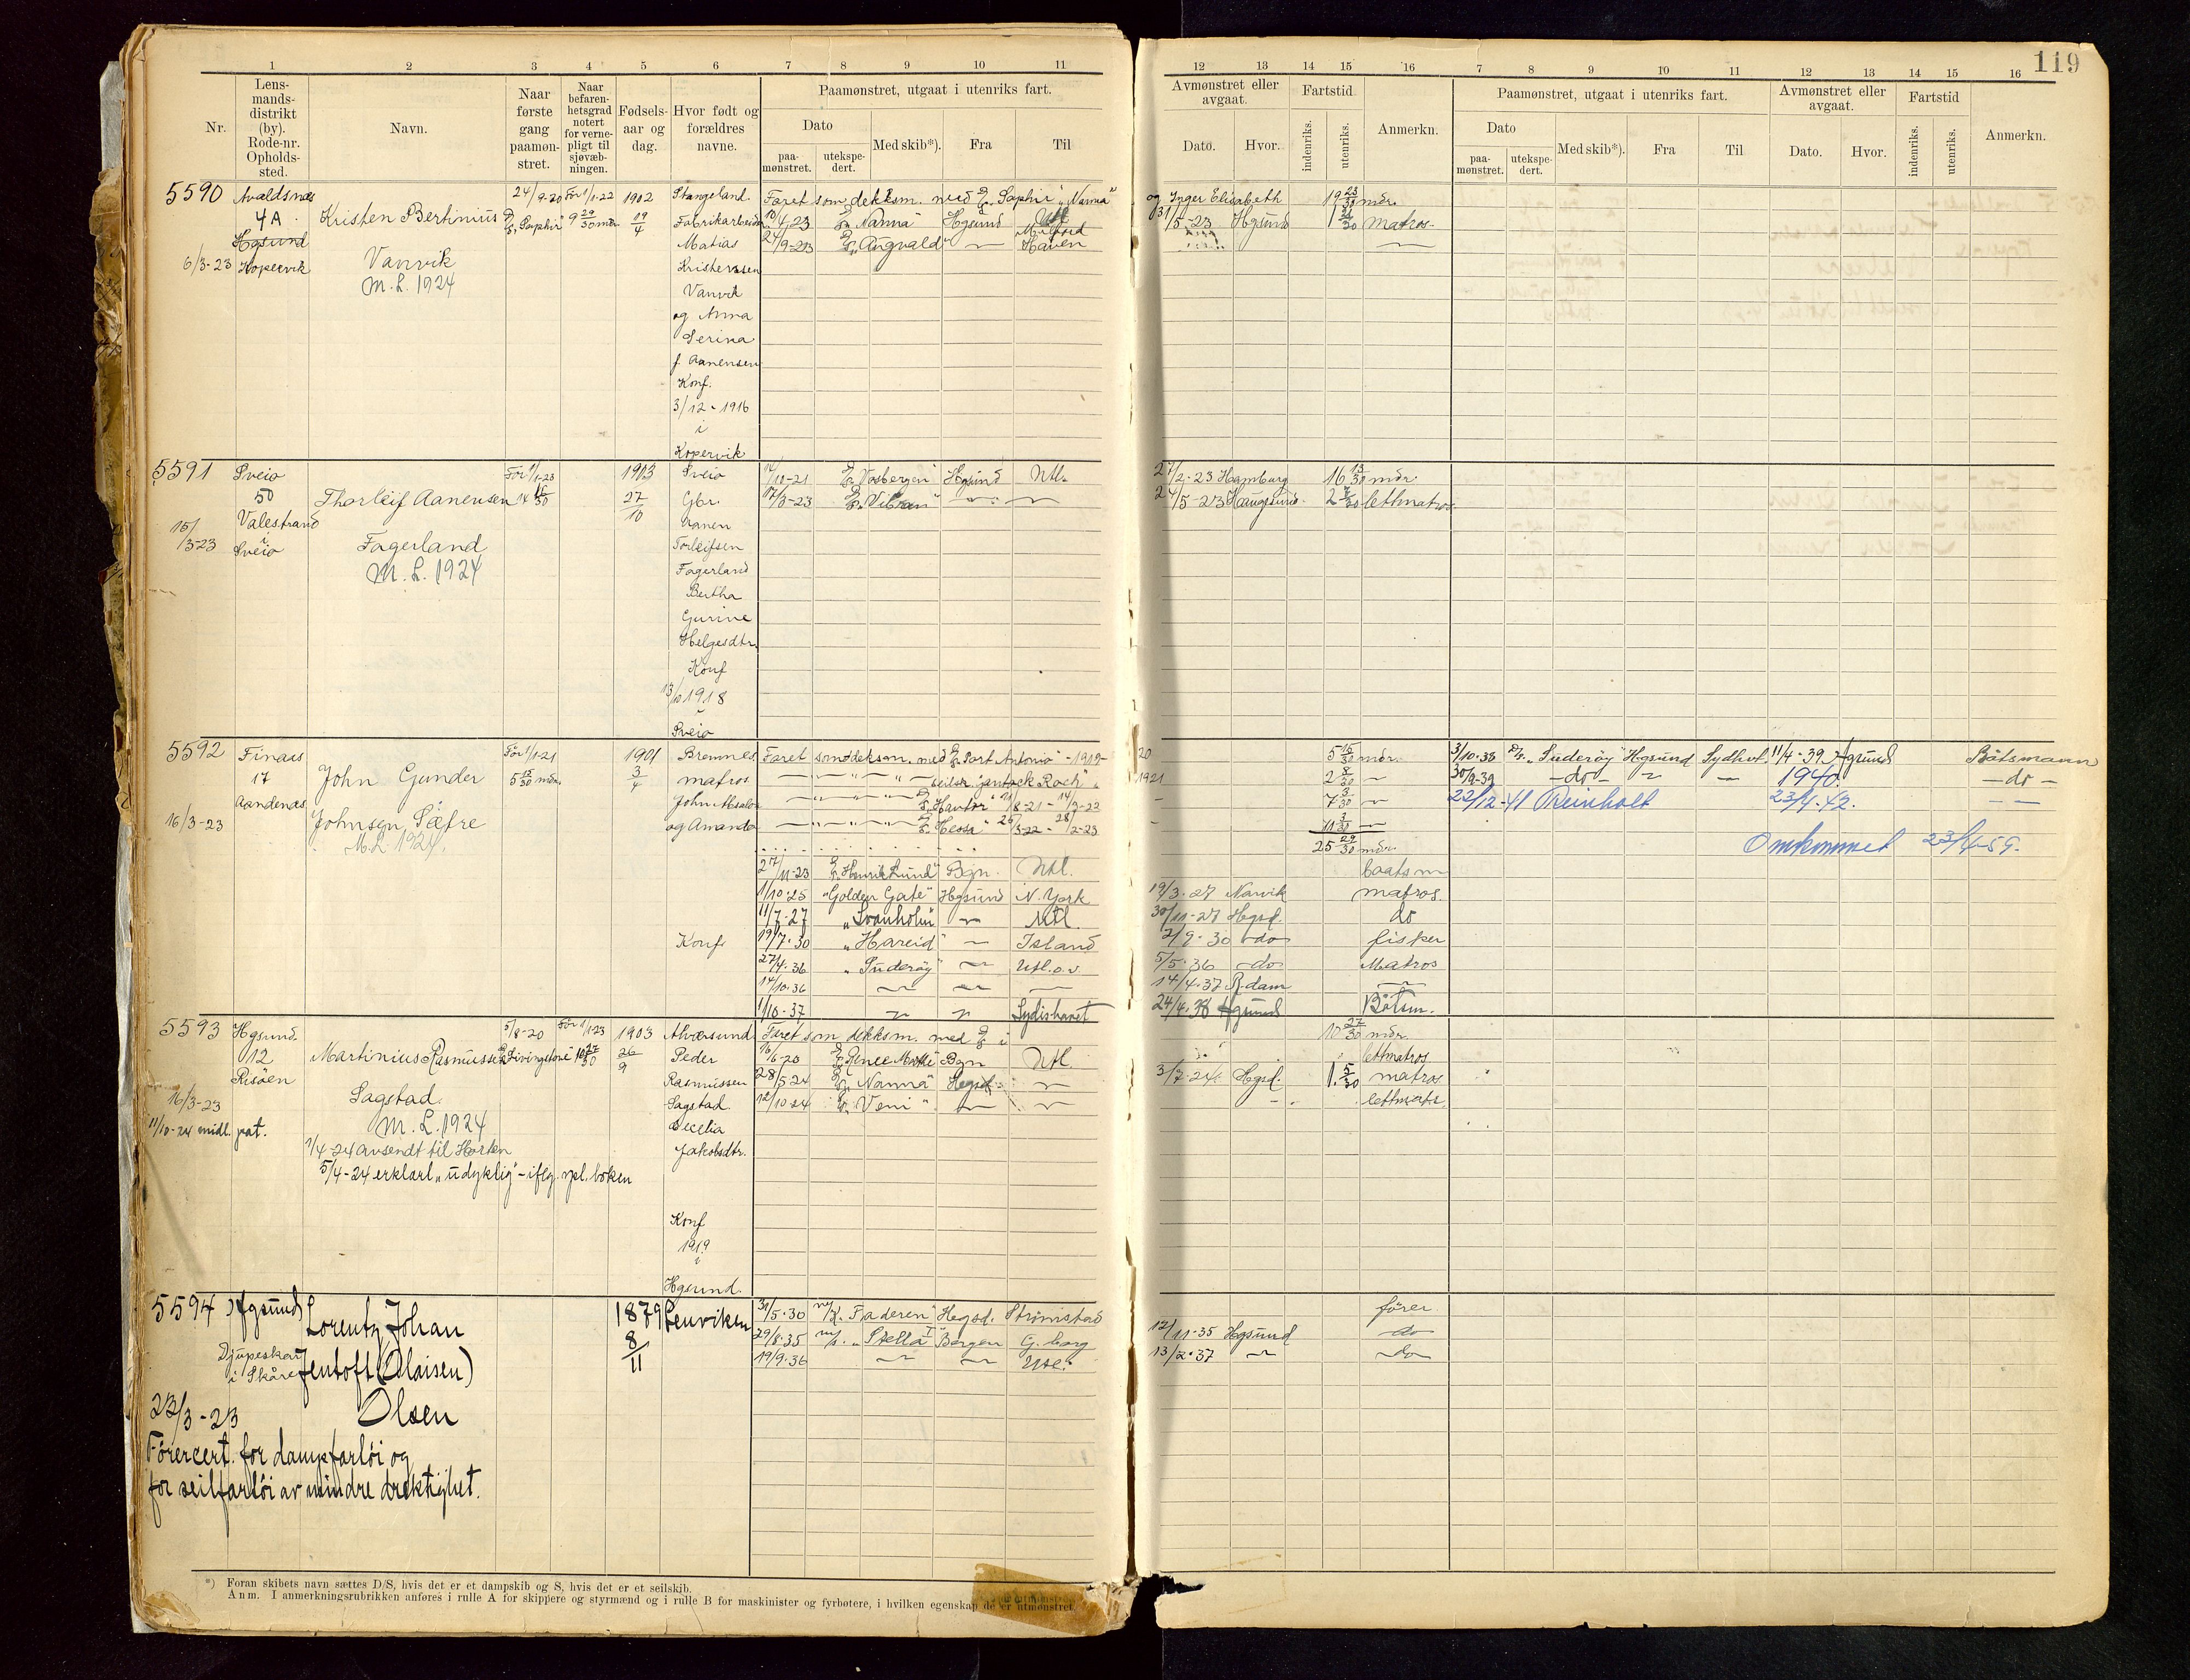 119
1 2 3 4 5 6 7 8 9 10 11
12 13 14 15 16 7 8 9 10 11 12 13 14 15 16
Nr.
Lens-
mands-
distrikt
(by).
Rode-nr.
Opholds-
sted.
Navn.
Naar
første
gang
paamøn-
stret.
Naar
befaren-
hetsgrad
notert
for verne-
pligt til
sjøvæb-
ningen.
Fødsels-
aar og
dag.
Hvor født og
forældres
navne.
Paamønstret, utgaat i utenriks fart.
Dato
paa-
mønstret.
utekspe-
dert.
Med skib*).
Fra
Til
Avmønstret eller
avgaat.
Dato.
Hvor.
Fartstid
indenriks.
utenriks.
Anmerkn.
Paamønstret, utgaat i utenriks fart.
Dato
paa-
mønstret.
utekspe-
dert.
Med skib*).
Fra
Til
Avmønstret eller
avgaat.
Dato.
Hvor.
Fartstid
indenriks.
utenriks.
Anmerkn.
5590 Avaldsnes 24/9-20 Før 1/1-22 1902 Stangeland. Faret som dekksm. med D/S "Saphir", "Nanna" og Inger Elisabeth 19 23/30 mdr.
4A. Kristen Bertinius D/S "Saphir" 9 29/30 mdr 19/4 Fabrikarbeider 10/4-23 D/S "Nanna" Hgsund Utl 31/5-23 Hgsund matros.
Hgsund Matias 24/9-23 D/S "Augvald" — Milford Haven —
6/3-23 Kopervik Vanvik Kristensen
M.L. 1924 Vanvik
og Anna
Serina
f. Aanensen
Konf.
3/12-1916
i
Kopervik
5591 Sveio Før 1/1-23 1903 Sveio 14/10-21 D/S "Vosbergen" Hgsund Utl. 27/2-23 Hamburg 16 13/30 mdr
50 Thorleif Aanensen 27/10 Gbr. 17/3-23 24/5-23 Haugesund lettmatros
Valestrand Aanen
15/3-23 i Sveio Fagerland Torleifsen
M.L. 1924 Fagerland
Bertha
Gurine
Helgesdtr.
Konf
1918
i
Sveio
5592 Finaas Før 1/1-21 1901 Bremnes Faret som deksm. med D/S "Port Antonio" - 1919-20 5 15/30 mdr. 3/10-38 "Suderøy" Hgsund Sydhvt. 11/4-39 Hgsund Båtsmann
17 John Gunder 5 15/30 mdr. 3/4 matros — " — " — seilsk. 1921 2 8/30 — 30/9-39 — do — 1940. — do —
Aandenæs John Absalon — " — D/S "Havtor" 8-21 - 14/3-22 7 3/30 — 22/12-41 Reinholt 23/4-42. — —
16/3-23 Johnsen Sæfre og Amanda — " — D/S "Hesse" 26/3-22 - 28/2-23
M.L. 1924. 25 29/30 mdr. Omkommet 23/4-59.
27/11-23 D/S "Henrik Lund" Bgn. Utl. baatsm
1/10-25 "Golden Gate" Hgsund N. York 19/3-27 Narvik matros.
11/7-27 "Svanholm" — Utl. 30/11-27 Hgsd. do
Konf. 19/7-30 "Hareid" — Island 2/9-30 — do — fisker
27/4-36 "Suderøy" — Utl.o.v. 5/5-36 — do — Matros
14/10-36 — — — 14/4-37 R.dam —
1/10-37 — — Sydishavet 24/4-38 Hgsund Båtsm.
5593 Hgsund. 5/8-20 Før 1/1-23 1903 Alversund Faret som dekksm. med D/S i 10 27/30 mdr.
12 Martinius Rasmussen "Livingstone" 10 27/30 26/9 Peder Bgn Utl lettmatros
Risøen Rasmussen 28/5-24 D/S "Nanna" Hgsd. — 3/7-24 Hgsd. 1 5/30 matros
16/3-23 Sagstad. Sagstad. 12/10-24 D/S "Veni" — — lettmatr.
11/10-24 midl. pat. M.L. 1924 Cecelia
1/4-24 avsendt til Horten Jakobsdtr.
5/4-24 erklært "udyktig" - iflg. rpl. boken
Konf
1919
i
Hgsund.
5594 Hgsund Lorentz Johan 1879 Lenviken 31/5-30 M/K. "Faderen" Hgsd. Strømstad fører
Djupeskar i Skåre Jentoft (Olaisen) 8/11 29/8-35 M/S. "Stella I" Bergen G.borg 12/11-35 Hgsund do
19/9-36 — — Utl. 13/2-37 — do
23/3-23 Olsen
Førercert. for dampfartøi og
for seilfartøi av mindre drektighet.
*) Foran skibets navn sættes D/S, hvis det er et dampskib og S, hvis det er et seilskib.
Anm. I anmerkningsrubrikken anføres i rulle A for skippere og styrmænd og i rulle B for maskinister og fyrbøtere, i hvilken egenskap de er utmønstret.